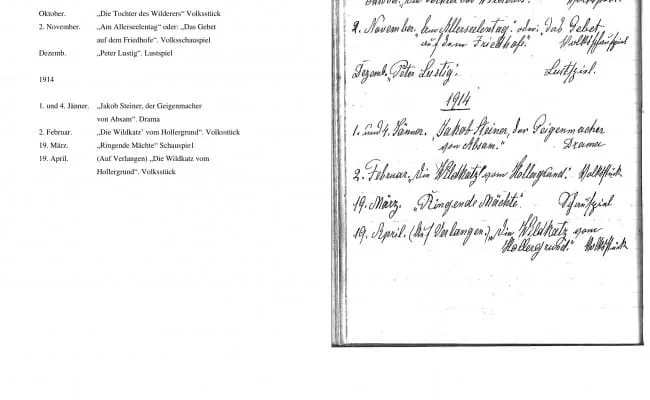 Oktober. „Die Tochter des Wilderers“ Volksstück
2. November. „Am Allerseelentag“ oder: „Das Gebet
auf dem Friedhofe“. Volksschauspiel
Dezemb. „Peter Lustig“. Lustspiel
1914
1. und 4. Jänner. „Jakob Steiner, der Geigenmacher
von Absam“. Drama
2. Februar. „Die Wildkatz’ vom Hollergrund“. Volksstück
19. März. „Ringende Mächte“ Schauspiel
19. April. (Auf Verlangen) „Die Wildkatz vom
Hollergrund“. Volksstück
2. November. „Am Allerseelentag“. oder: „Das Gebet
auf dem Friedhofe“. Volksschauspiel
Dezemb. „Peter Lustig“. Lustspiel.
1914
1. und 4. Jänner. „Jakob Steiner, der Geigenmacher
von Absam.“ Drama
2. Februar. „Die Wildkatz’ vom Hollergrund.“ Volksstück
19. März. „Ringende Mächte“. Schauspiel
19. April. (Auf Verlangen.) „Die Wildkatz vom
Hollergrund.“ Volksstück